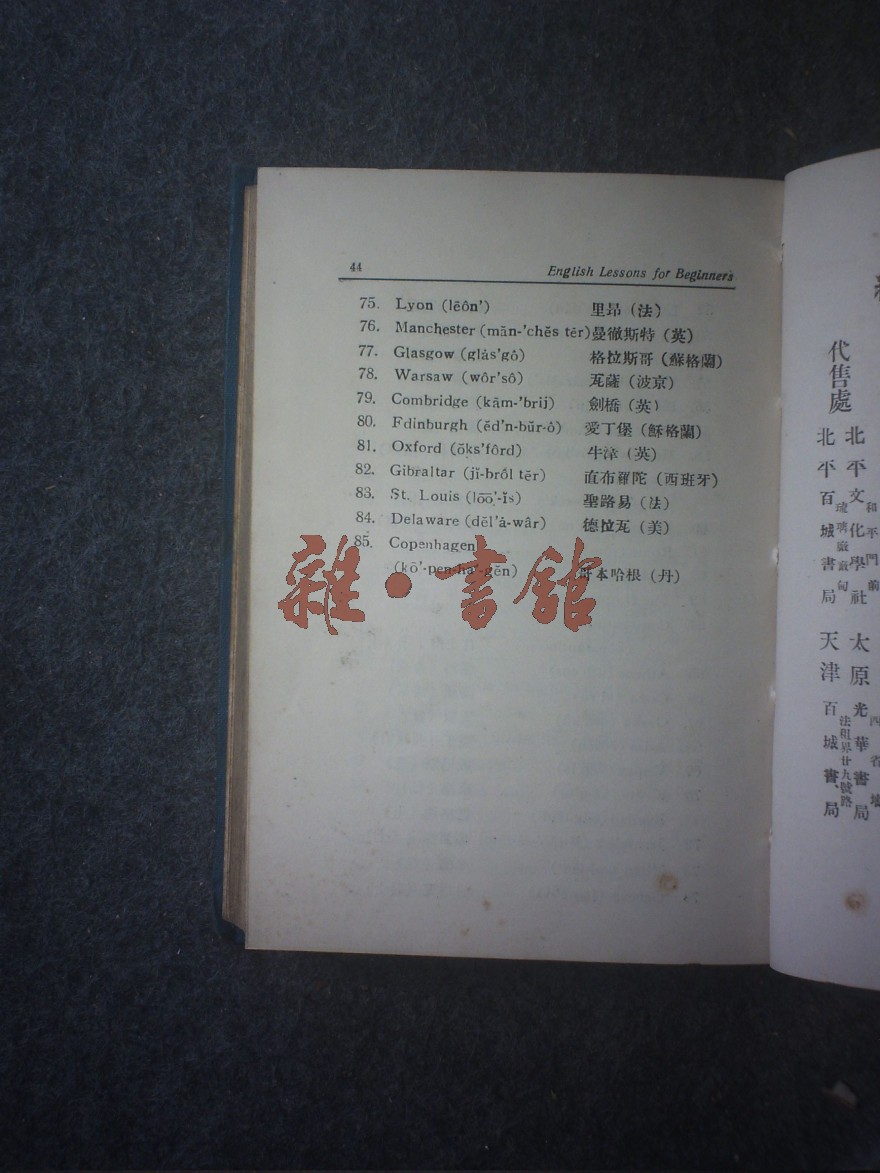 44 English Lessons for Beginners
75. Lyon (lēôn') 里昂 (法)
76. Manchester (mān-'chĕs tẽr) 曼徹斯特 (英)
77. Glasgow (glàs'gō) 格拉斯哥 (蘇格蘭)
78. Warsaw (wôr'sô) 瓦薩 (波京)
79. Combridge (kām-'brij) 劍橋 (英)
80. Fdinburgh (ĕd'n-bŭr-ô) 愛丁堡 (蘇格蘭)
81. Oxford (ŏks'fôrd) 牛津 (英)
82. Gibraltar (jĭ-brôl tẽr) 直布羅陀 (西班牙)
83. St. Louis (lōō'-ĭs) 聖路易 (法)
84. Delaware (dĕl'á-wâr) 德拉瓦 (美)
85. Copenhagen
(kō'-pen-hā'-gĕn) 哥本哈根 (丹)
雜·書館
代售處
北平文化學社 和平門前
太原光華書局
北平百城書局
天津百城書局 法租界廿九號路